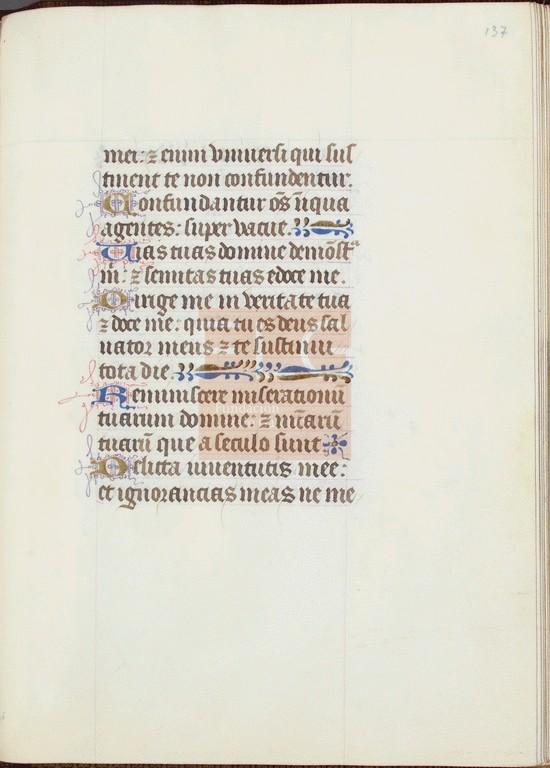 137
mei: ⁊ enim vniuersi qui sus
tinent te non confundentur.
Confundantur oēs iniqua
agentes: super vacue.
Vias tuas domine demōstra
mi: ⁊ semitas tuas edoce me.
Dirige me in veritate tua
⁊ doce me: quia tu es deus sal
uator meus ⁊ te sustinui
tota die.
Reminiscere miserationū
tuarum domine: ⁊ mīaruū
tuarū que a seculo sunt
Delicta iuuentutis mee:
et ignorancias meas ne me
Fundación